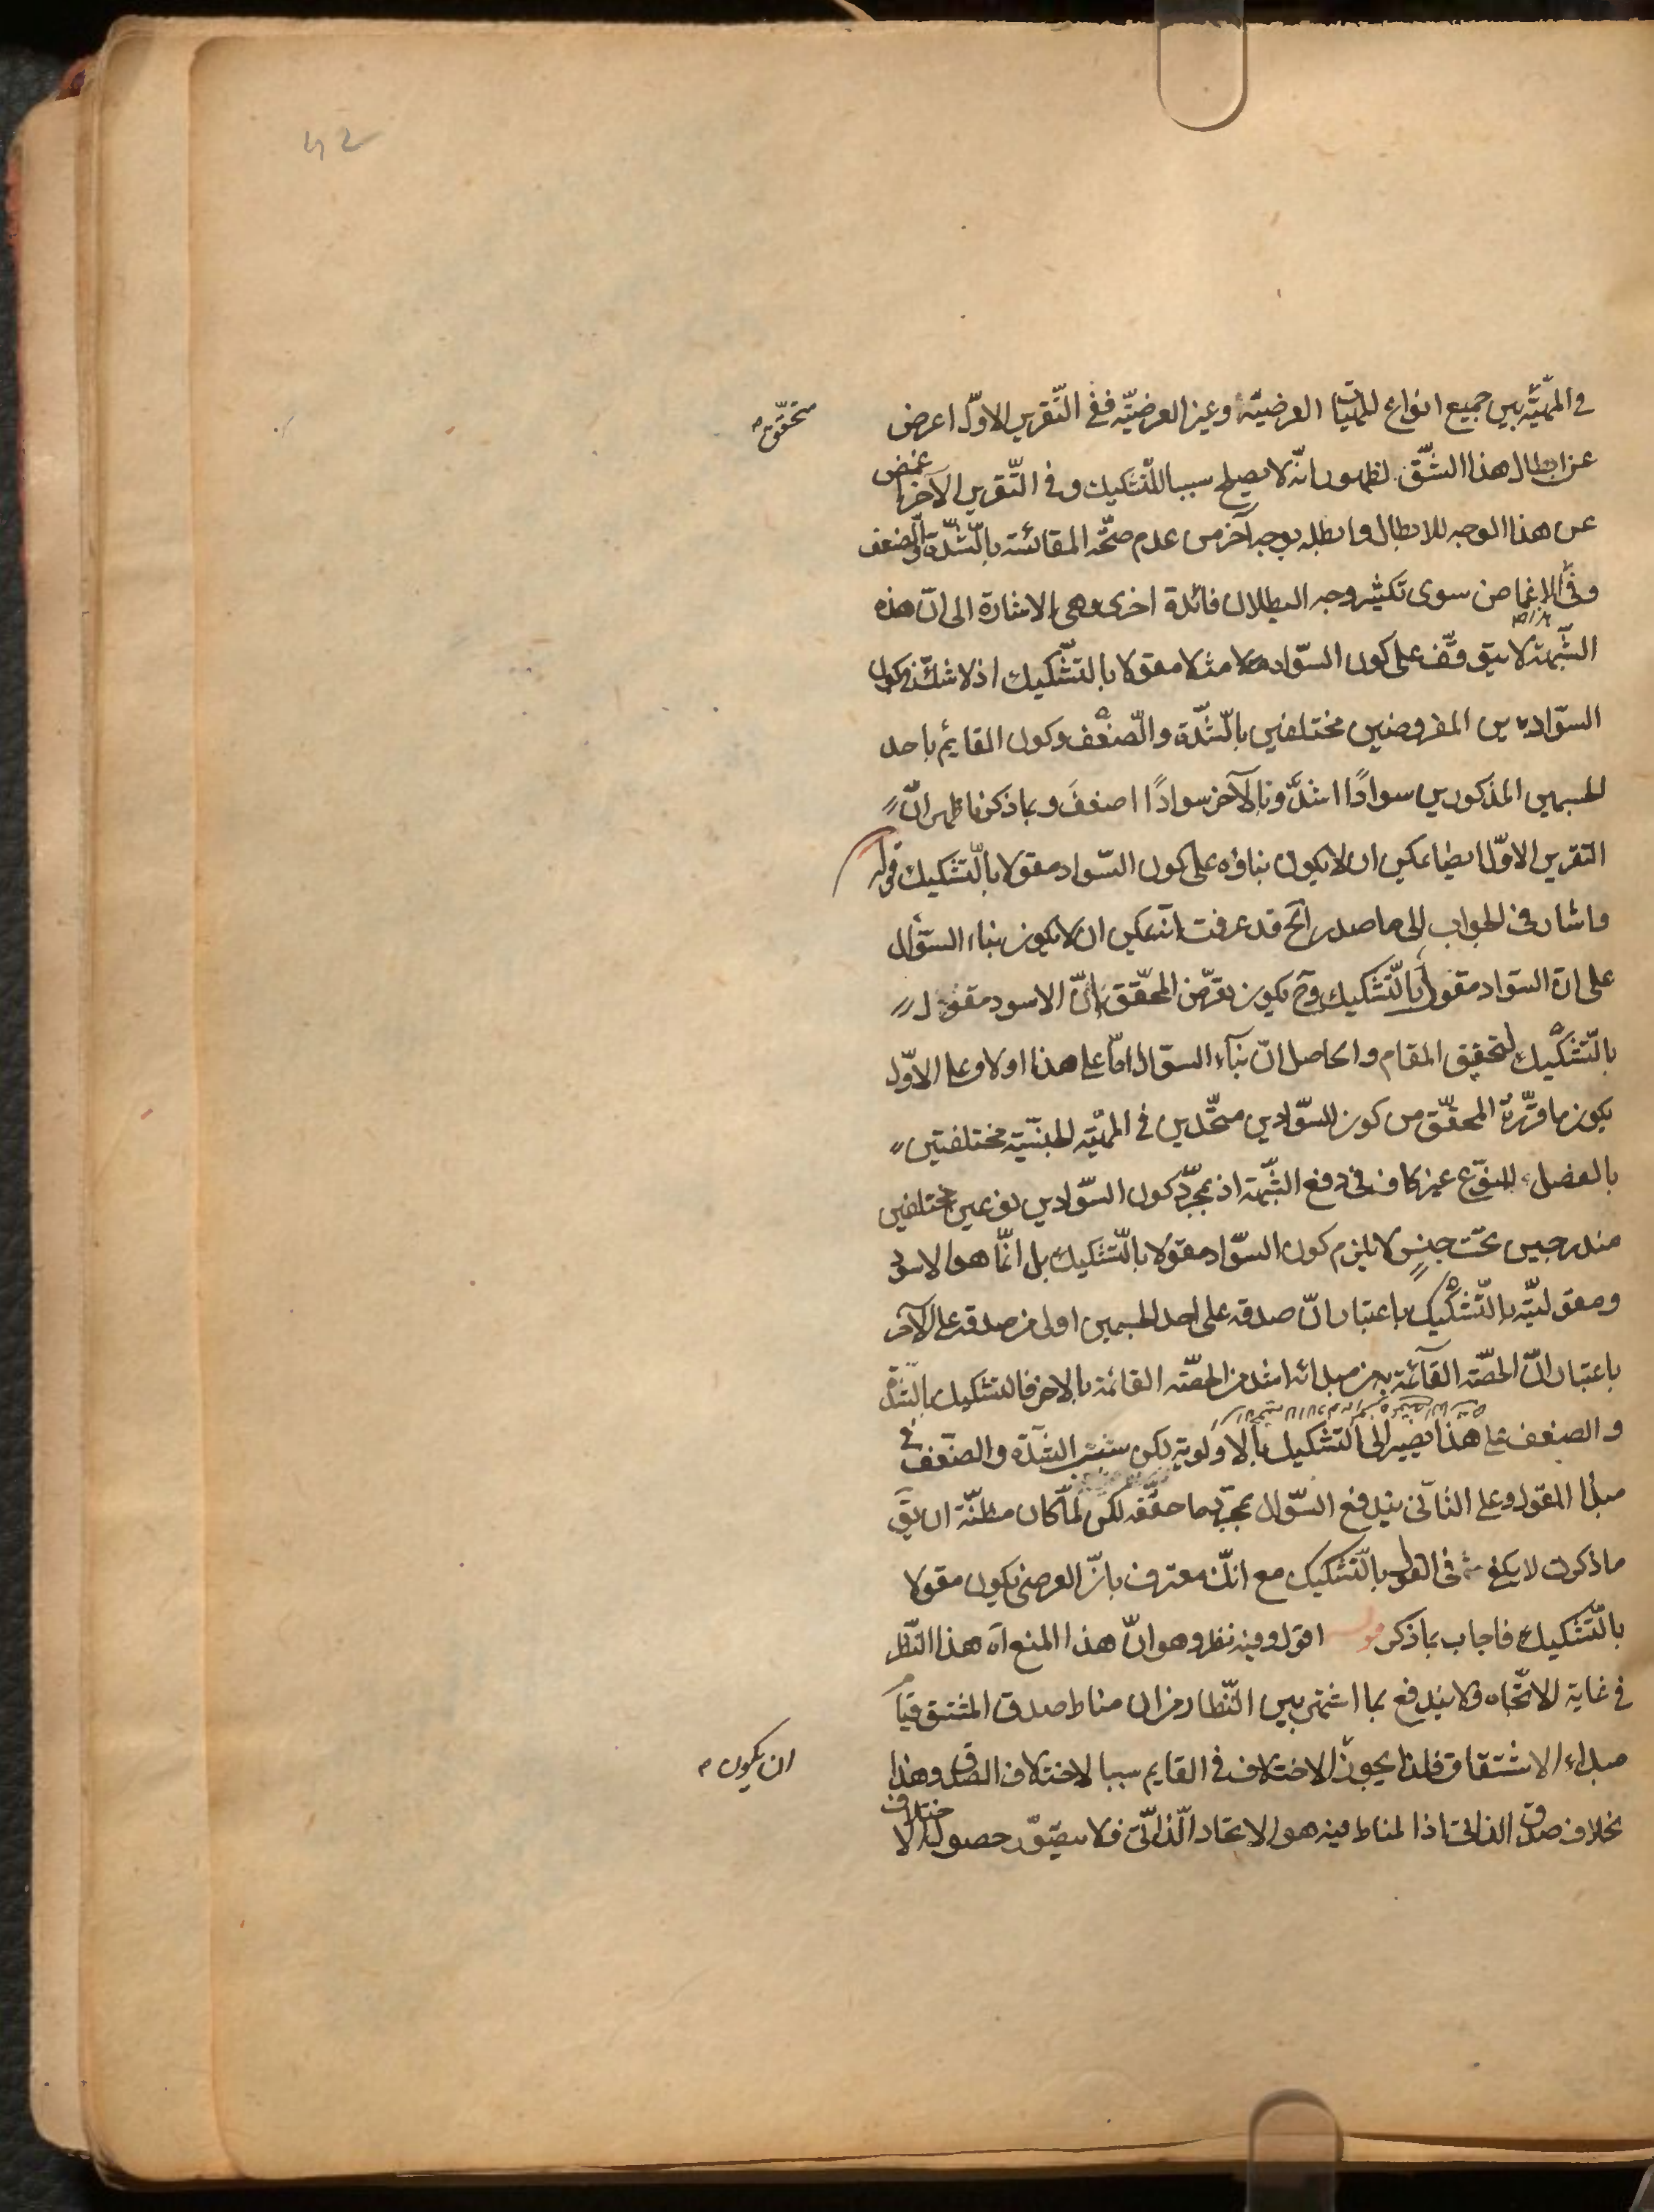 42
في المهيّة بين جميع انواع المهيّات العرضيّة وغير العرضيّة ففي التّقرير الاوّل اعرض
متحقّق
عن ابطال هذا الشّق لظهور انّه لا يصلح سببا للتّشكيك وفي التّقرير الآخر غمض
عن هذا الوجه للابطال وابطله بوجه آخر من عدم صحّة المقائسة بالشّدّة والضّعف
وفي الاغماض سوى تكثير وجه البطلان فائدة اخرى وهي الاشارة الى انّ هذه
الشّبهة لا يتوقّف على كون السّواد مثلا مقولا بالتّشكيك اذ لا شكّ في كون
السّوادين المفروضين مختلفين بالشّدّة والضّعف وكون القايم باحد
الجسمين المذكورين سوادًا اشدّ وبالآخر سوادًا اضعفَ وبما ذكرنا ظهر انّ
التقرير الاوّل ايضا يمكن ان لا يكون بناؤه على كون السّواد مقولا بالتّشكيك قوله
واشار في الجواب الى ما صدر آه قد عرفت انّه يمكن ان لا يكون بناء السّؤال
على ان السّواد مقول بالتّشكيك وح يكون تعرّض المحقّق بانّ الاسود مقول
بالتّشكيك لتحقيق المقام والحاصل انّ بناء السؤال امّا على هذا او لا وعلى الاوّل
يكون ما قرّره المحقّق من كون السّوادين متّحدين في المهيّة الجنسيّة مختلفتين
بالفصل المنوّع غير كاف في دفع الشّبهة اذ بمجرّد كون السّوادين نوعين مختلفين
مندرجين تحت جنس لا يلزم كون السّواد مقولا بالتّشكيك بل انّما هو الاسود
ومقوليّته بالتّشكيك باعتبار انّ صدقه على احد الجسمين اولى من صدقه على الآخر
باعتبار انّ الحصّة القائمة به من مبدائه اشد من الحصّة القائمة بالاخر فالتشكيك بالشّدّة
والضعف على هذا يصير الى التّشكيك بالاولوية لكن بشرط الشّدّة والضّعف في
مبدأ المقول وعلى الثاني يندفع السّؤال بمجرّد ما حقّقه لكن لمّا كان مظنّة ان يقَ
ما ذكرت لا يكفي في القول بالتّشكيك مع انّك معترف بانّ العرضي يكون مقولا
بالتّشكيك فاجاب بما ذكر قوله اقول وفيه نظر وهو انّ هذا المنع آه هذا النّظر
في غاية الاتّجاه ولا يندفع بما اشتهر بين النّظار من ان مناط صدق المشتق قيام
مبداء الاشتقاق فلذا يجوز الاختلاف في القايم سببا لاختلاف الصّدق وهذا
ان يكون
بخلاف صدق الذاتي اذ المناط فيه هو الاتحاد الذّاتيّ فلا يتصوّر حصول الاختلاف